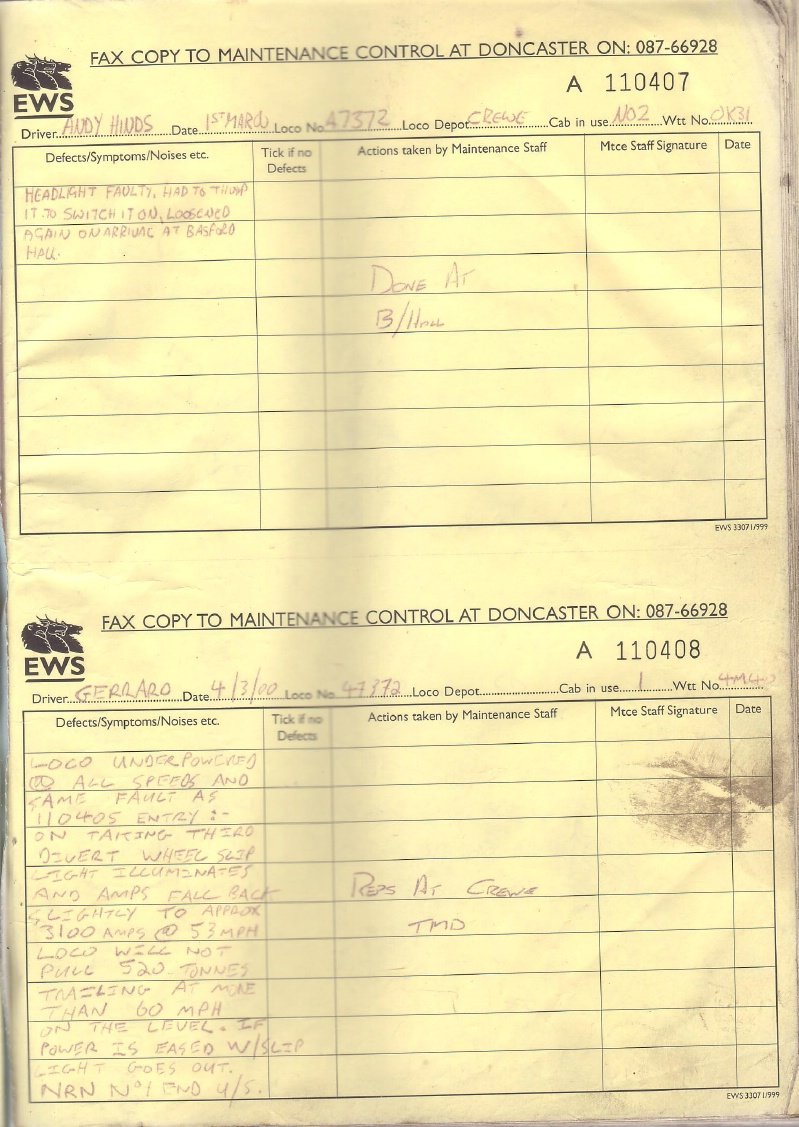 FAX COPY TO MAINTENANCE CONTROL AT DONCASTER ON: 087-66928
EWS
A 110407
Driver ANDY HINDS Date 1ST MARCH Loco No 47372 Loco Depot CREWE Cab in use NO2 Wtt No OK31
Defects/Symptoms/Noises etc. Tick if no Defects Actions taken by Maintenance Staff Mtce Staff Signature Date
HEADLIGHT FAULTY, HAD TO THUMP
IT TO SWITCH IT ON, LOOSENED
AGAIN ON ARRIVAL AT BASFORD
HALL.
DONE AT
B/HALL
EWS 33071/999
FAX COPY TO MAINTENANCE CONTROL AT DONCASTER ON: 087-66928
EWS
A 110408
Driver GERRARD Date 4/3/00 Loco No 47372 Loco Depot Cab in use 1 Wtt No 4M40
Defects/Symptoms/Noises etc. Tick if no Defects Actions taken by Maintenance Staff Mtce Staff Signature Date
LOCO UNDERPOWERED
@ ALL SPEEDS AND
SAME FAULT AS
110405 ENTRY :-
ON TAKING THIRD
DIVERT WHEEL SLIP
LIGHT ILLUMINATES
AND AMPS FALL BACK
SLIGHTLY TO APPROX
3100 AMPS @ 53 MPH
LOCO WILL NOT
PULL 520 TONNES
TRAILING AT MORE
THAN 60 MPH
ON THE LEVEL. IF
POWER IS EASED W/SLIP
LIGHT GOES OUT.
NRN No1 END U/S.
REPS AT CREWE
TMD
EWS 33071/999